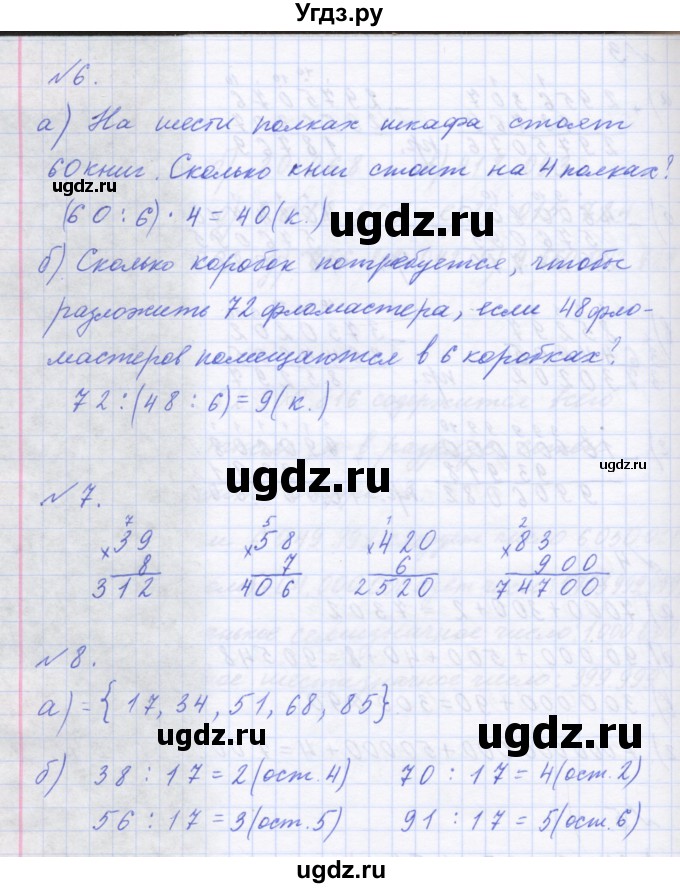 Угдз.ру
№6.
а) На шести полках шкафа стоят
60 книг. Сколько книг стоит на 4 полках?
ugdz.ru
(60:6)·4=40(к.)
ugdz.ru
б) Сколько коробок потребуется, чтобы
разложить 72 фломастера, если 48 фло-
мастеров помещаются в 6 коробках?
72:(48:6)=9(к.)
ugdz.ru
ugdz.ru
№7.
7 5 1 2
×39 ×58 ×420 ×83
8 7 6 900
312 406 2520 74700
№8.
а)={17, 34, 51, 68, 85}
ugdz.ru
ugdz.ru
б) 38:17=2(ост.4) 70:17=4(ост.2)
56:17=3(ост.5) 91:17=5(ост.6)
ugdz.ru